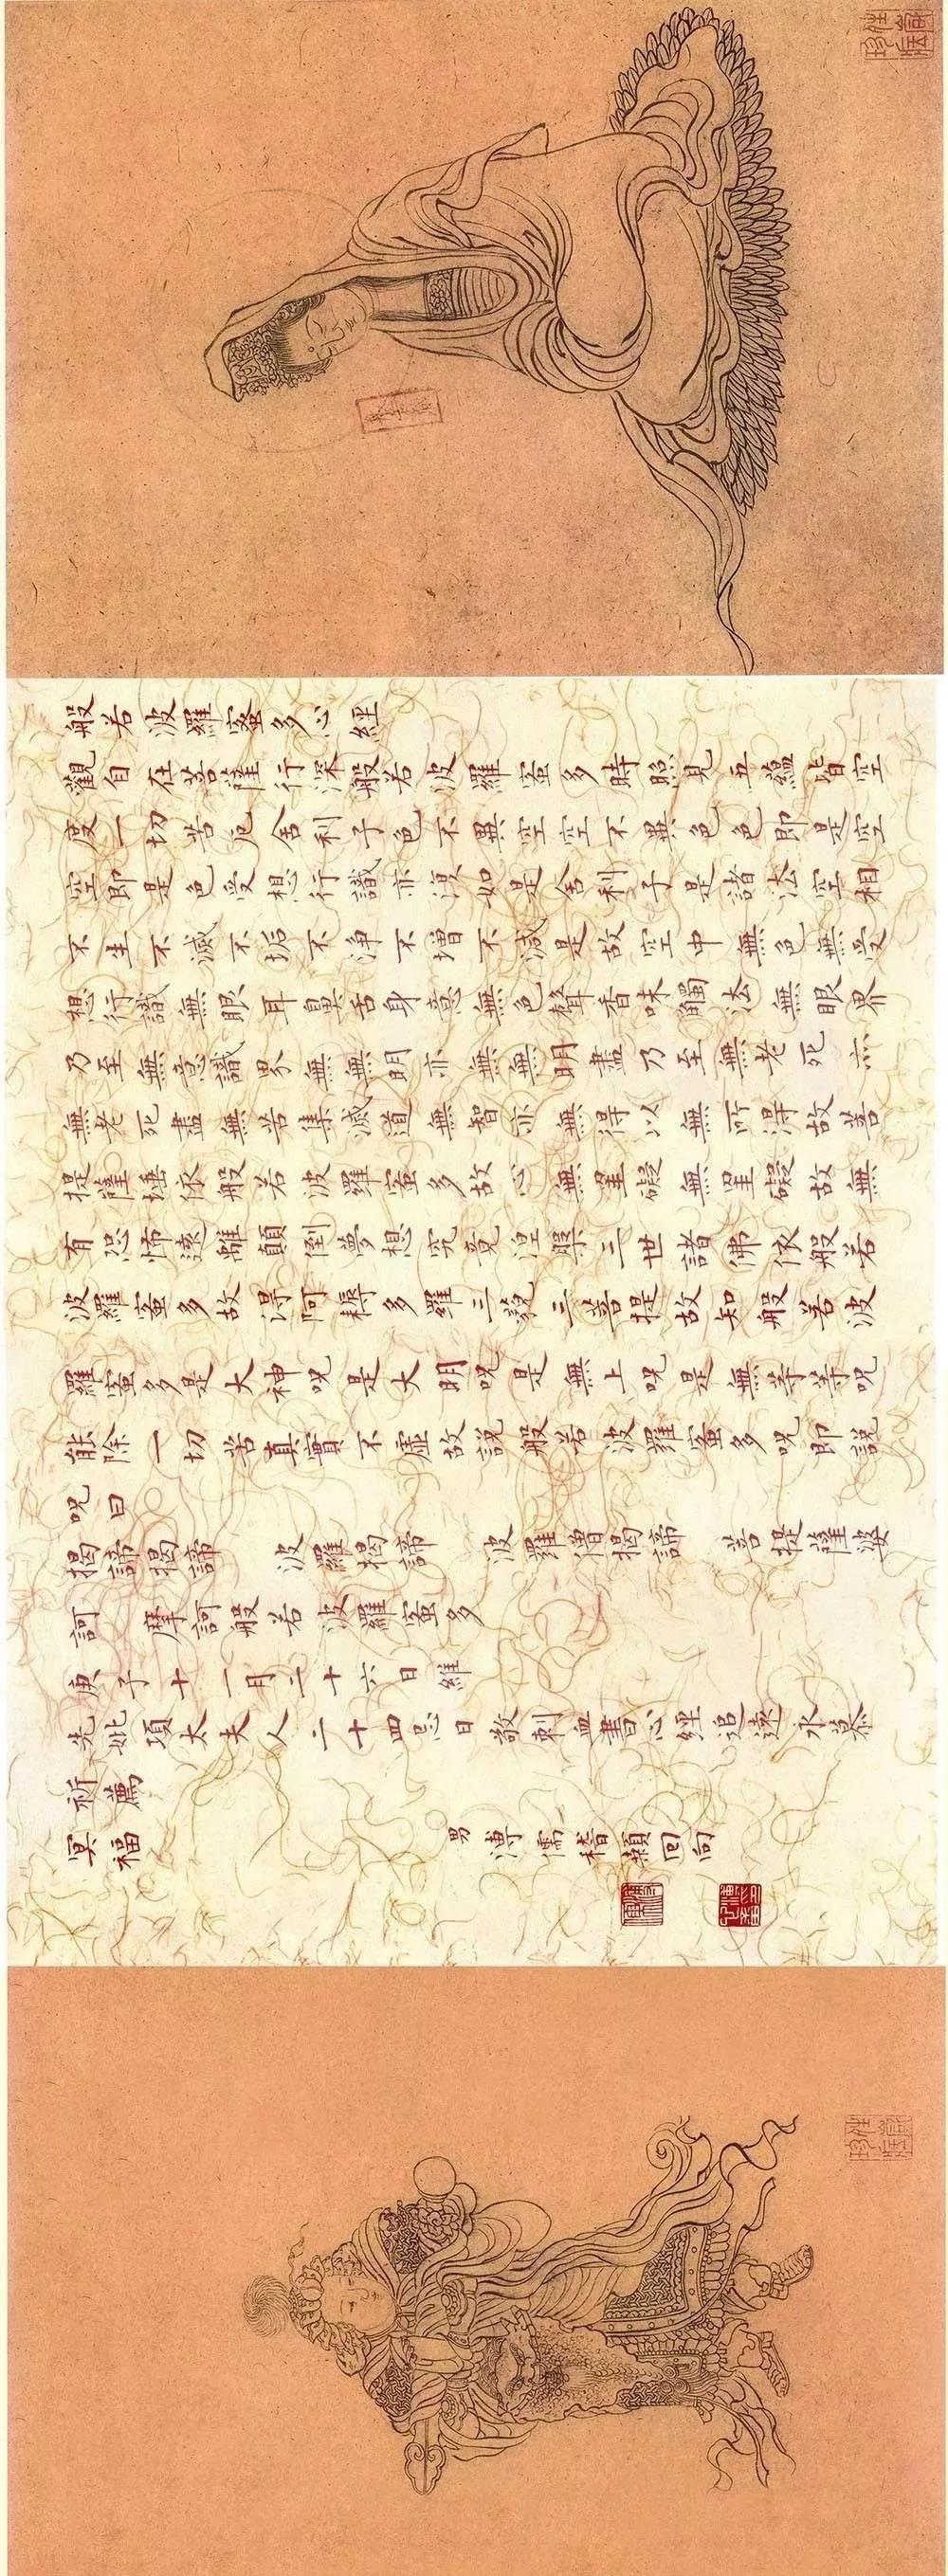 般若波羅蜜多心經
觀自在菩薩行深般若波羅蜜多時照見五蘊皆空
度一切苦厄舍利子色不異空空不異色色即是空
空即是色受想行識亦復如是舍利子是諸法空相
不生不滅不垢不淨不增不減是故空中無色無受
想行識無眼耳鼻舌身意無色聲香味觸法無眼界
乃至無意識界無無明亦無無明盡乃至無老死亦
無老死盡無苦集滅道無智亦無得以無所得故菩
提薩埵依般若波羅蜜多故心無罣礙無罣礙故無
有恐怖遠離顛倒夢想究竟涅槃三世諸佛依般若
波羅蜜多故得阿耨多羅三藐三菩提故知般若波
羅蜜多是大神呪是大明呪是無上呪是無等等呪
能除一切苦真實不虛故說般若波羅蜜多呪即說
呪曰
揭諦揭諦 波羅揭諦 波羅僧揭諦 菩提薩婆
訶 摩訶般若波羅蜜多
庚子十一月二十六日維
先妣項太夫人二十四忌日敬刺血書心經追遠永慕
祈薦
冥福 男溥儒稽顙回向